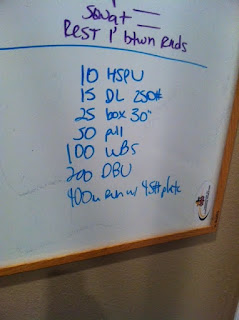 Squat
REST 1' btwn Rnds
10 HSPU
15 DL 250#
25 box 30"
50 pull
100 WBS
200 DBU
400m Run w/ 45# plate